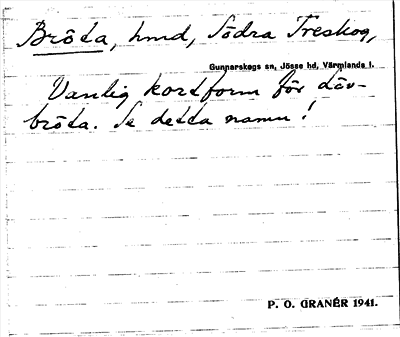 Bröta, hmd, Södra Treskog,
Gunnarskogs sn, Jösse hd, Värmlands l.
Vanlig kortform för döv-
bröta. Se detta namn!
P. O. GRANÉR 1941.